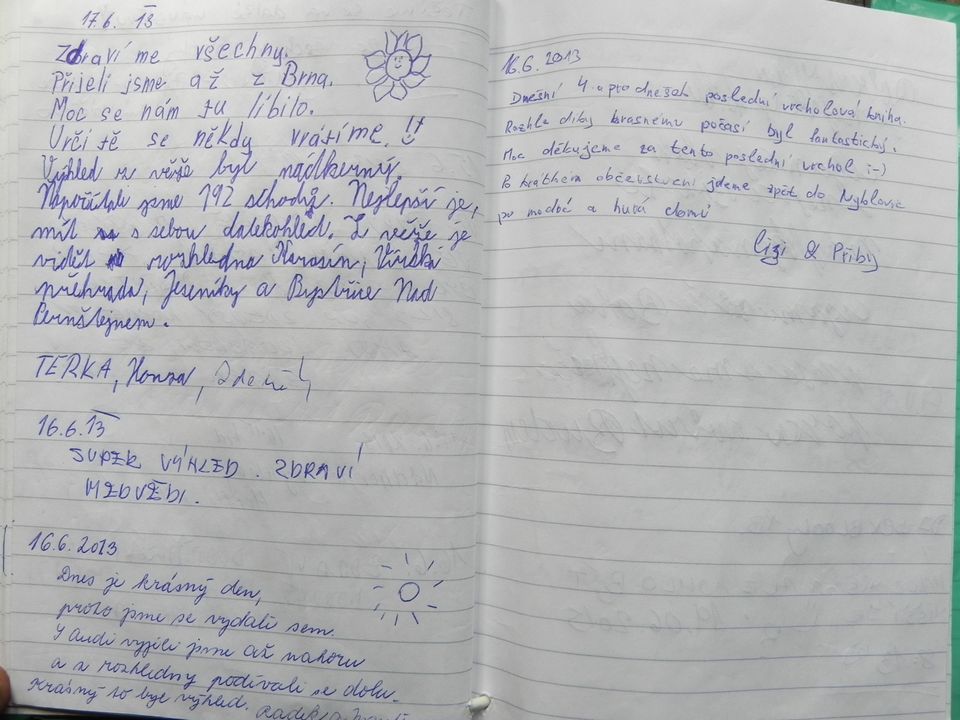 17.6. 13
Zdraví me všechny.
Přijeli jsme až z Brna.
Moc se nám tu líbilo.
Určitě se někdy vrátíme. !!
Výhled z věže byl nádherný.
Napočítali jsme 192 schodů. Nejlepší je,
mít s sebou dalekohled. Z věže je
vidět rozhledna Karasín, Vírská
přehrada, Jeseníky a Bystřice Nad
Pernštejnem.
TERKA, Honza, Zdeně
16.6.13
SUPER VÝHLED. ZDRAVÍ
MEDVĚDI.
16.6.2013
Dnes je krásný den,
proto jsme se vydali sem.
S audi vyjeli jsme až nahoru
a z rozhledny podívali se dolu.
Krásný to byl výhled. Radek a
16.6.2013
Dnešní 4. a pro dnešek poslední vrcholová kniha.
Rozhled díky krasnemu počasí byl fantastický.
Moc děkujeme za tento poslední vrchol :-)
Po krátkém občerstvení jdeme zpět do
po modré a hurá domů
Lizi & Přiby